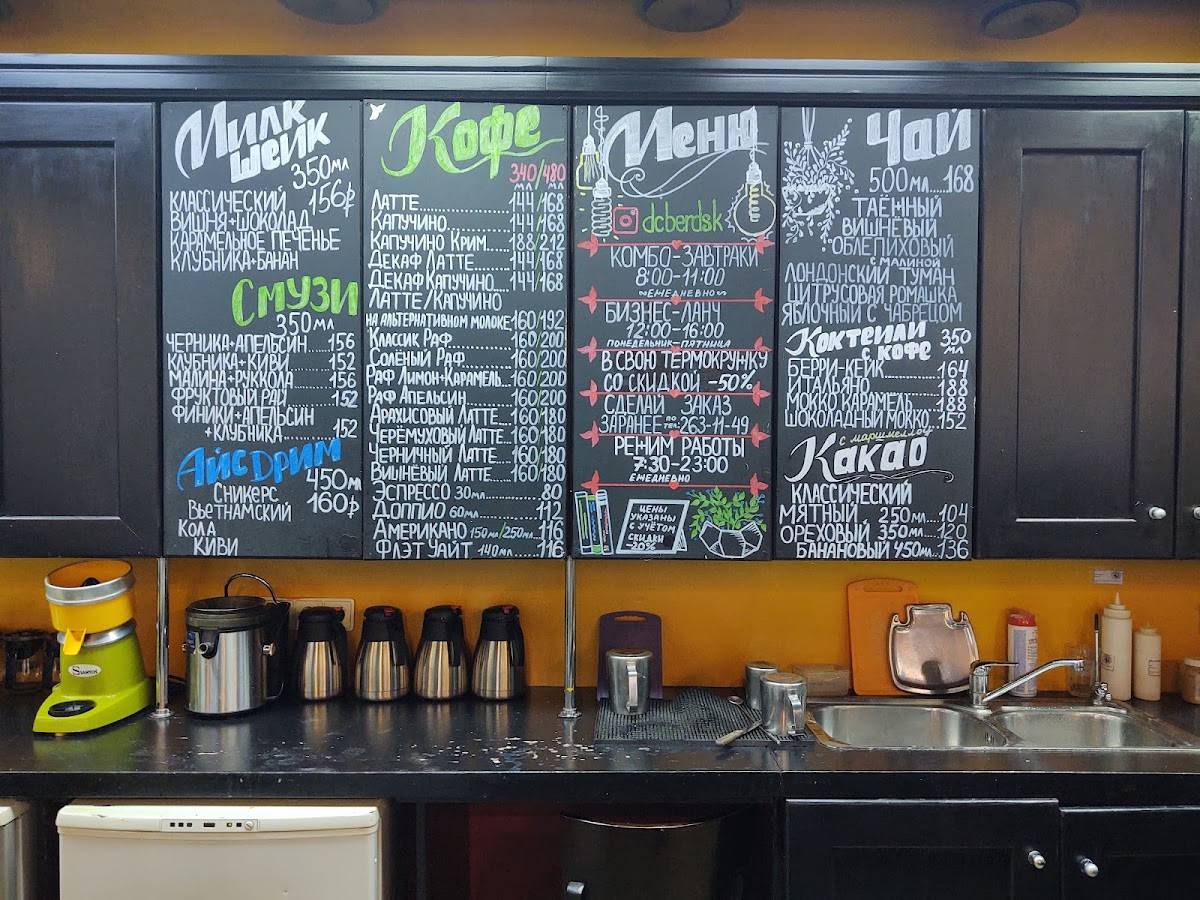 Милк
шейк
350мл
КЛАССИЧЕСКИЙ 156₽
ВИШНЯ+ШОКОЛАД
КАРАМЕЛЬНОЕ ПЕЧЕНЬЕ
КЛУБНИКА+БАНАН
Смузи
350мл
ЧЕРНИКА+АПЕЛЬСИН 156
КЛУБНИКА+КИВИ 152
МАЛИНА+РУККОЛА 156
ФРУКТОВЫЙ РАЙ 152
ФИНИКИ+АПЕЛЬСИН
+КЛУБНИКА 152
АйсДрим
450мл
СНИКЕРС 160₽
ВЬЕТНАМСКИЙ
КОЛА
КИВИ
Кофе
340/480
мл мл
ЛАТТЕ 144/168
КАПУЧИНО 144/168
КАПУЧИНО КРИМ 188/212
ДЕКАФ ЛАТТЕ 144/168
ДЕКАФ КАПУЧИНО 144/168
ЛАТТЕ/КАПУЧИНО
НА АЛЬТЕРНАТИВНОМ МОЛОКЕ 160/192
КЛАССИК РАФ 160/200
СОЛЁНЫЙ РАФ 160/200
РАФ ЛИМОН+КАРАМЕЛЬ 160/200
РАФ АПЕЛЬСИН 160/200
АРАХИСОВЫЙ ЛАТТЕ 160/180
ЧЕРЁМУХОВЫЙ ЛАТТЕ 160/180
ЧЕРНИЧНЫЙ ЛАТТЕ 160/180
ВИШНЁВЫЙ ЛАТТЕ 160/180
ЭСПРЕССО 30мл 80
ДОППИО 60мл 112
АМЕРИКАНО 150мл/250мл 116
ФЛЭТ УАЙТ 140мл 116
Меню
dcberdsk
КОМБО-ЗАВТРАКИ
8:00-11:00
~ЕЖЕДНЕВНО~
БИЗНЕС-ЛАНЧ
12:00-16:00
ПОНЕДЕЛЬНИК-ПЯТНИЦА
В СВОЮ ТЕРМОКРУЖКУ
СО СКИДКОЙ -50%
СДЕЛАЙ ЗАКАЗ
ЗАРАНЕЕ ПО ТЕЛ.: 263-11-49
РЕЖИМ РАБОТЫ
7:30-23:00
ЕЖЕДНЕВНО
ЦЕНЫ
УКАЗАНЫ
С УЧЁТОМ
СКИДКИ
-20%
Чай
500мл 168
ТАЁЖНЫЙ
ВИШНЕВЫЙ
ОБЛЕПИХОВЫЙ
С МАЛИНОЙ
ЛОНДОНСКИЙ ТУМАН
ЦИТРУСОВАЯ РОМАШКА
ЯБЛОЧНЫЙ С ЧАБРЕЦОМ
Коктейли
с кофе 350 мл
БЕРРИ-КЕЙК 164
ИТАЛЬЯНО 188
МОККО КАРАМЕЛЬ 188
ШОКОЛАДНЫЙ МОККО 152
с маршмеллоу
Какао
КЛАССИЧЕСКИЙ
МЯТНЫЙ 250мл 104
ОРЕХОВЫЙ 350мл 120
БАНАНОВЫЙ 450мл 136